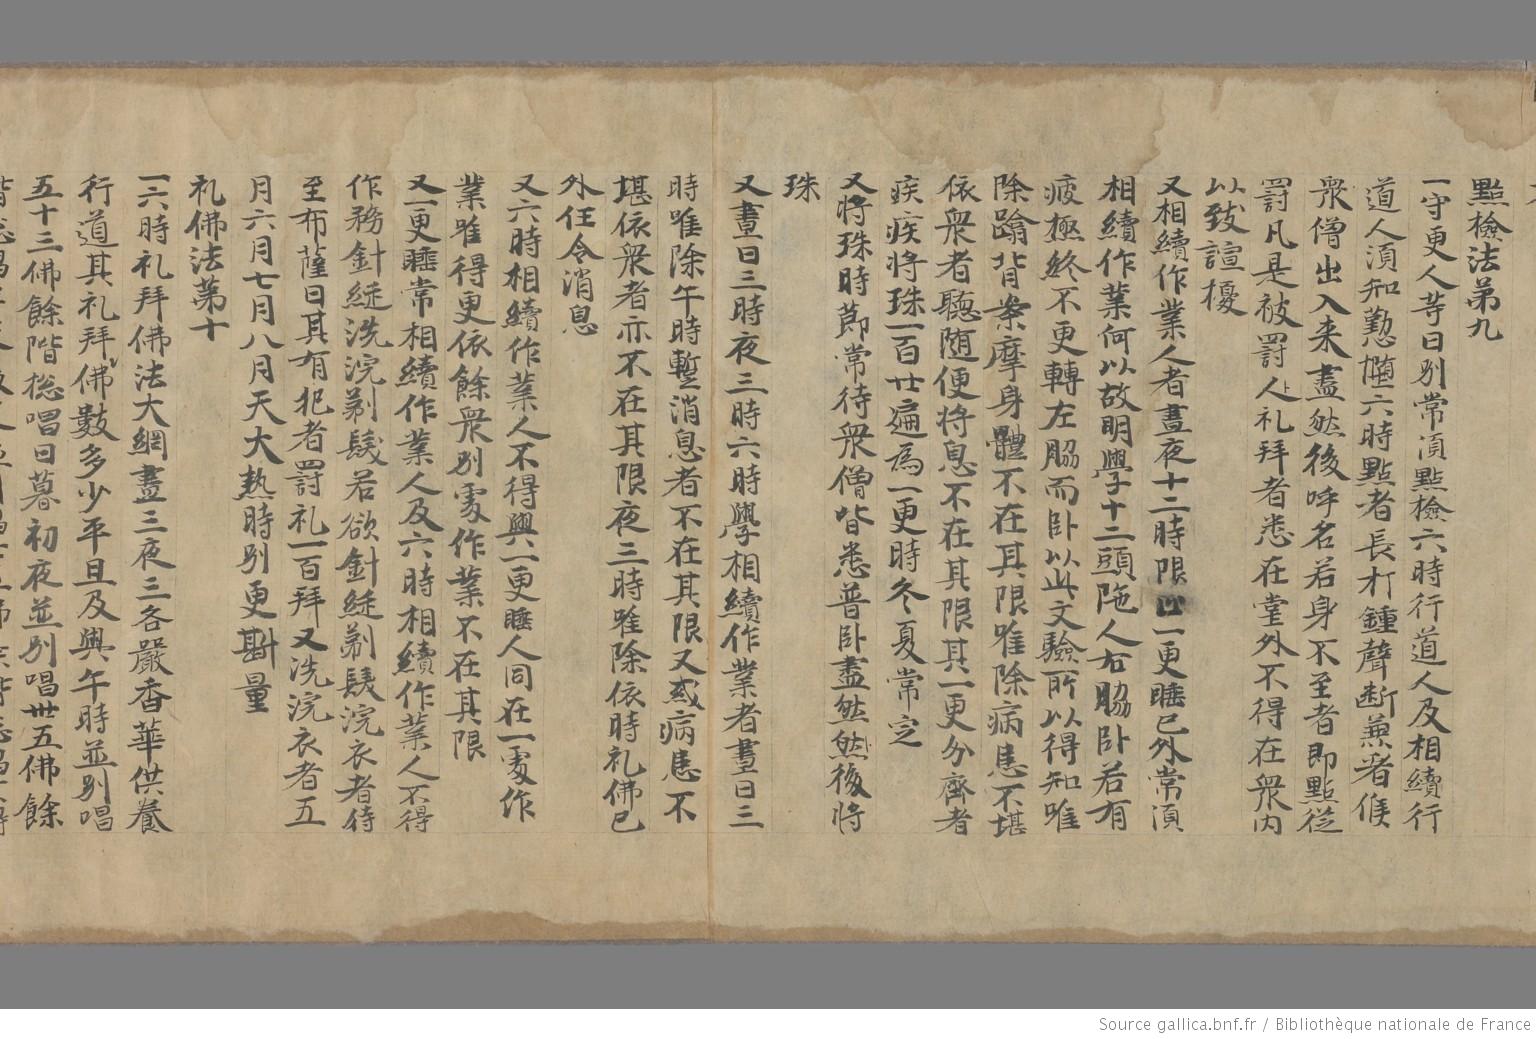 點檢法第九
一守更人等日別常湏點檢六時行道人及相續行
道人湏知懃墯六時點者長打鍾聲断兼著俟
衆僧出入来盡然後呼名若身不至者即點從
罰凡是被罰人礼拜者悉在堂外不得在衆内
以致諠擾
又相續作業人者晝夜十二時限一更睡已外常湏
相續作業何以故明學十二頭陁人右脇卧若有
疲極終不更轉左脇而卧以此文驗所以得知唯
除踰背案摩身體不在其限唯除病患不堪
依衆者聽随便將息不在其限其一更分齊者
疾疾將珠一百廿遍為一更時冬夏常定
又將珠時節常待衆僧皆悉普卧盡然然後將
珠
又晝日三時夜三時六時學相續作業者晝日三
時唯除午時蹔消息者不在其限又或病患不
堪依衆者亦不在其限夜三時唯除依時礼佛已
外任令消息
又六時相續作業人不得與一更睡人同在一䖏作
業唯得更依餘衆別䖏作業不在其限
又一更睡常相續作業人及六時相續作業人不得
作務針縫洗浣剃髮若欲針縫剃髮浣衣者待
至布薩日其有犯者罰礼一百拜又洗浣衣者五
月六月七月八月天大熱時別更斟量
礼佛法第十
一六時礼拜佛法大綱晝三夜三各嚴香華供養
行道其礼拜佛數多少平旦及與午時並別唱
五十三佛餘階㧾唱日暮初夜並別唱卅五佛餘